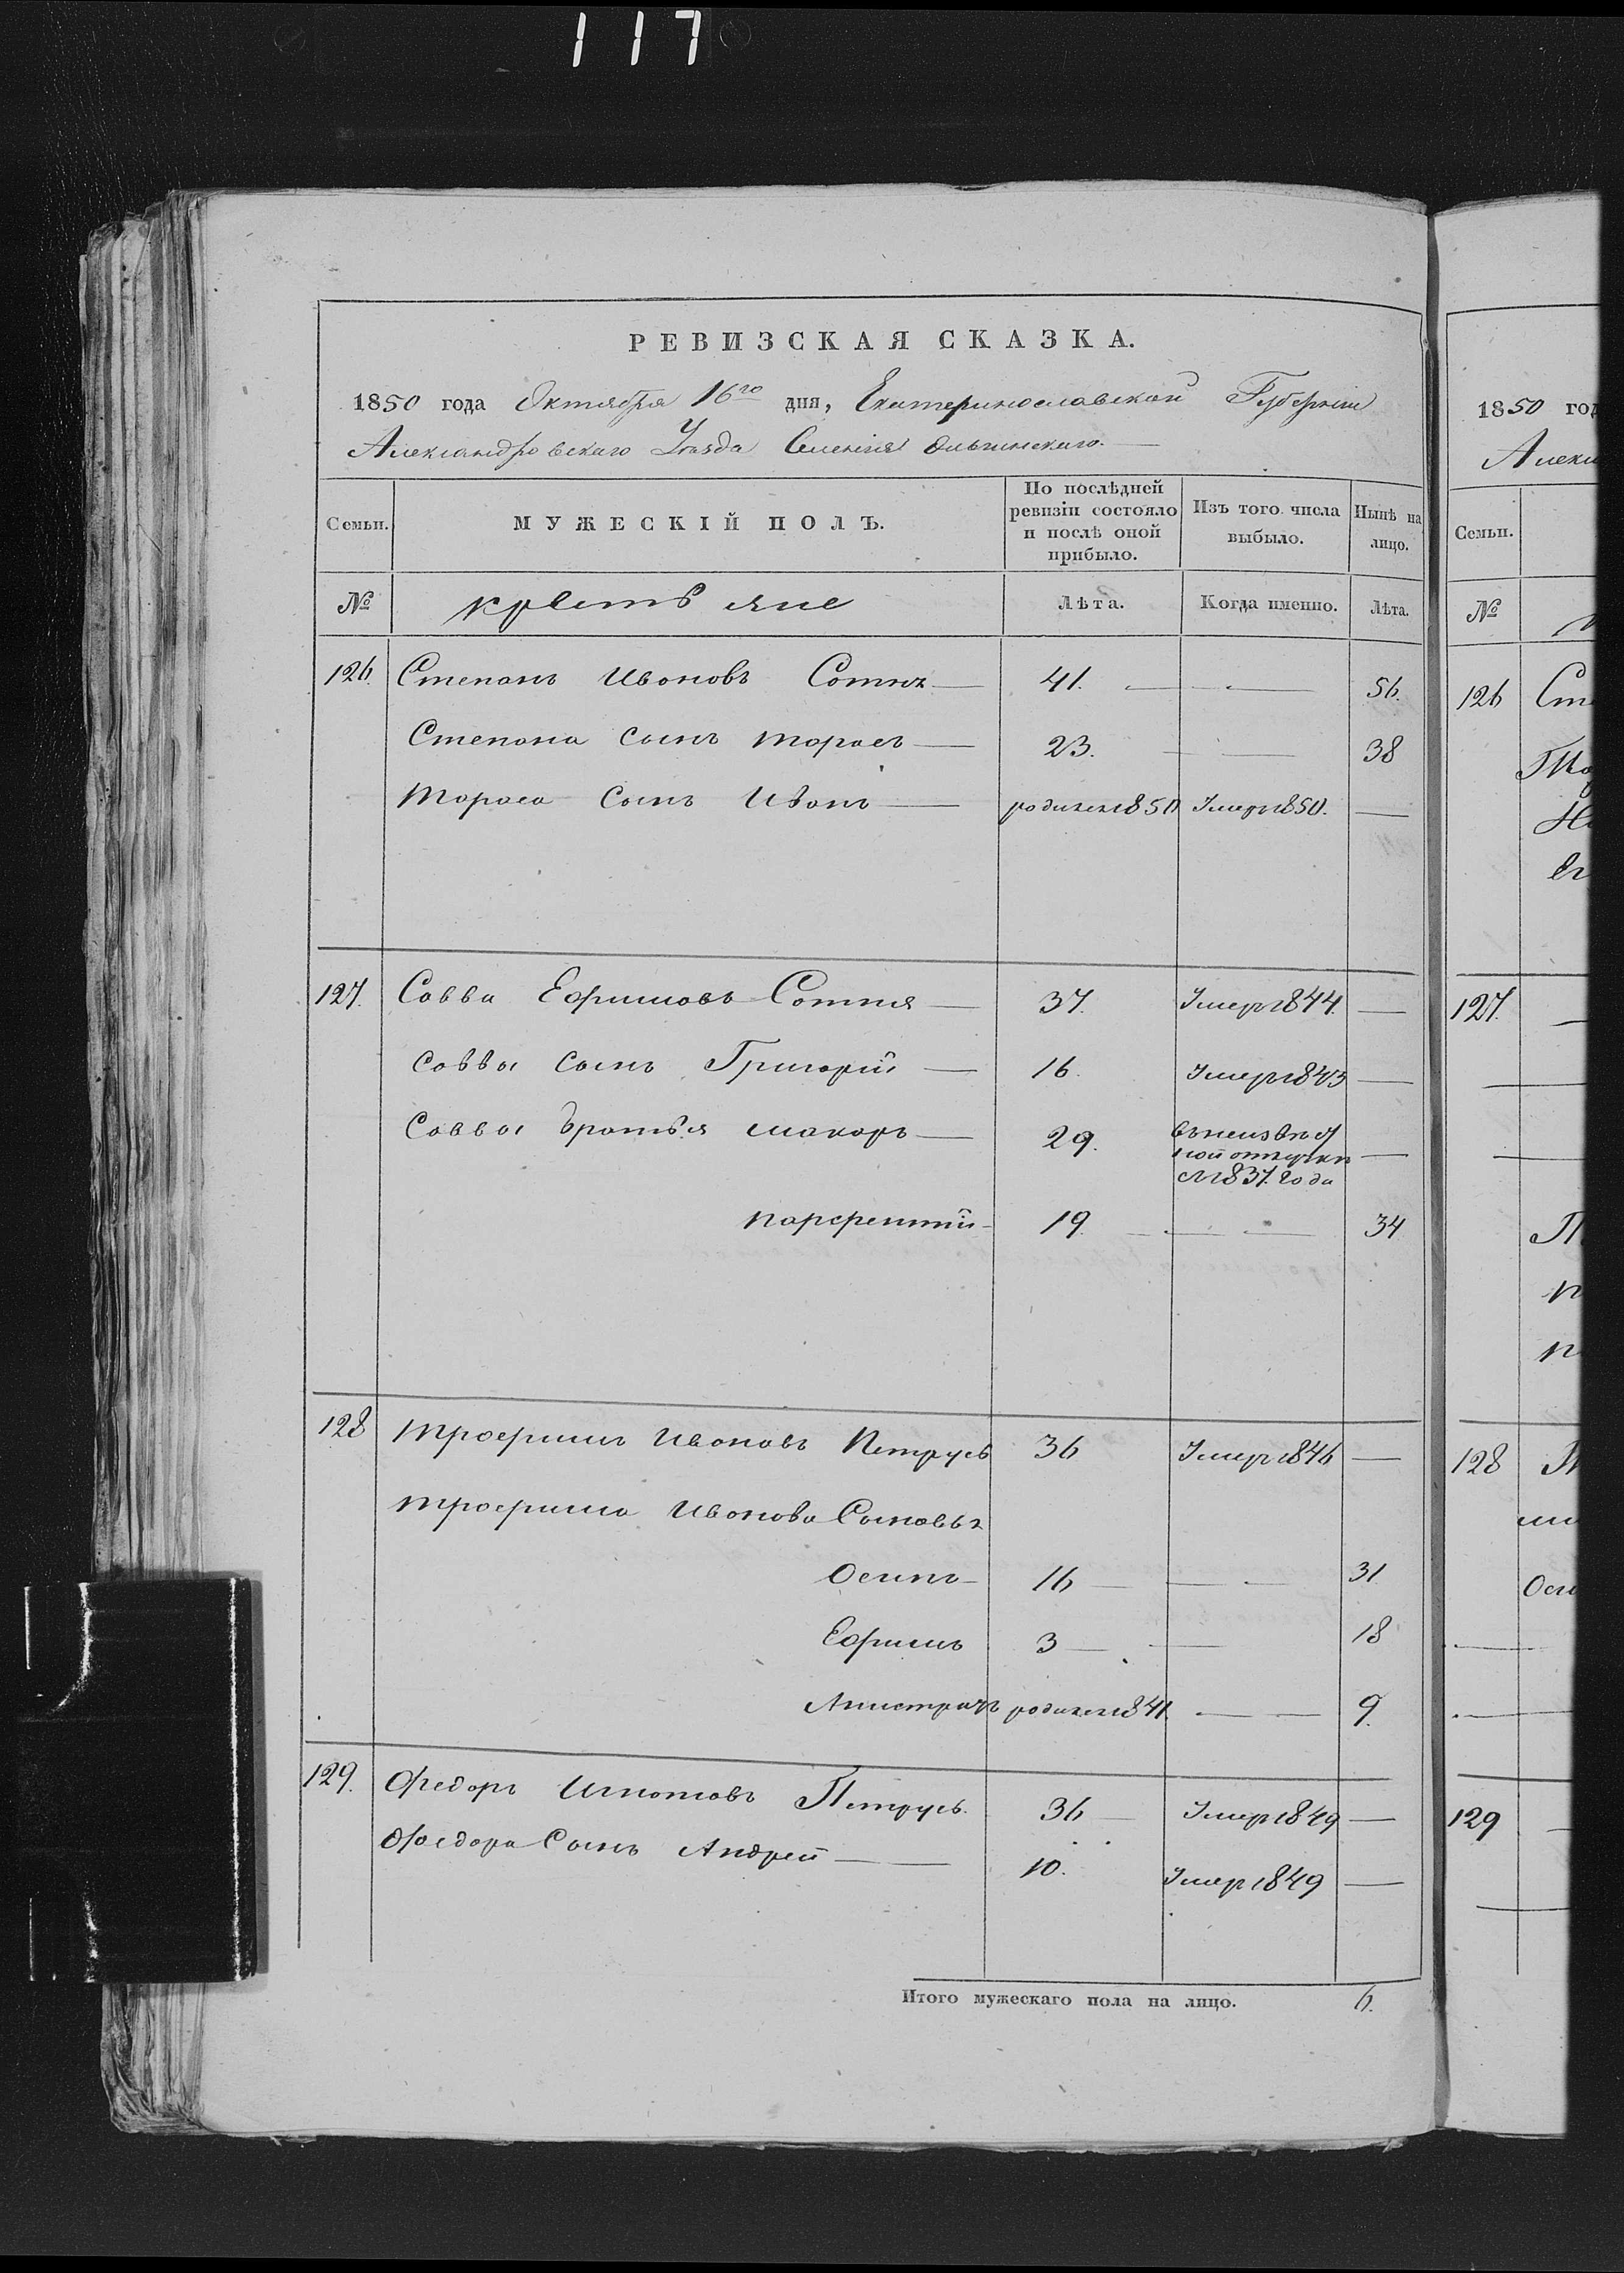 117
РЕВИЗСКАЯ СКАЗКА.
1850 года Октября 16го дня, Екатеринославской Губерніи
Александровскаго Уезда Селенія Ольгинскаго.
Семьи. МУЖЕСКІЙ ПОЛЪ. По послѣдней ревизіи состояло и послѣ оной прибыло. Изъ того числа выбыло. Нынѣ на лицо.
№ крестьяне Лѣта. Когда именно. Лѣта.
126. Степанъ Ивановъ Сотня 41. 56.
Степана сынъ Тарасъ 23. 38
Тараса сынъ Иванъ родился 1850 Умеръ 1850.
127. Савва Ефимовъ Сотня 37. Умеръ 1844.
Саввы сынъ Григорій 16. Умеръ 1843
Саввы братья Макаръ 29. въ неизвѣст
ной отлучкѣ
съ 1837. года
Парфентій 19. 34
128 Трофимъ Ивановъ Петрусь 36 Умеръ 1846
Трофима Иванова Сыновья
Осипъ 16 31
Ефимъ 3 18
Анистратъ родился 1841. 9.
129. Федоръ Игнатовъ Петрусь. 36 Умеръ 1849
Федора Сынъ Андрей 10. Умеръ 1849
Итого мужескаго пола на лицо. 6.
1850 год
Алекс
Семьи.
№
126 Сте
Та
Ег
127.
128
Оси
129